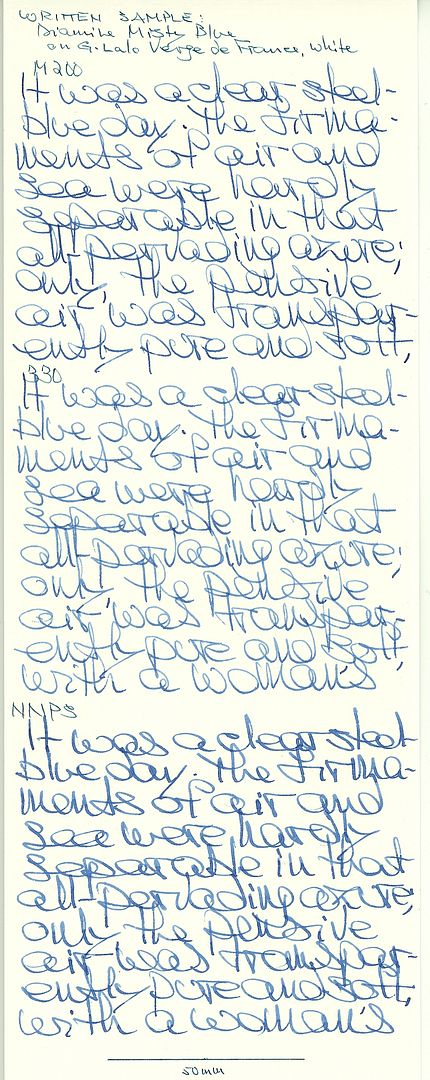 WRITTEN SAMPLE:
Diamine Misty Blue
on G. Lalo Verge de France, white
M200
It was a clear steel-
blue day. The firma-
ments of air and
sea were hardly
separable in that
all-pervading azure;
only, the pensive
air was transpar-
ently pure and soft,
330
It was a clear steel-
blue day. The firma-
ments of air and
sea were hardly
separable in that
all-pervading azure;
only, the pensive
air was transpar-
ently pure and soft,
with a woman's
NMPS
It was a clear steel-
blue day. The firma-
ments of air and
sea were hardly
separable in that
all-pervading azure;
only, the pensive
air was transpar-
ently pure and soft,
with a woman's
50 mm